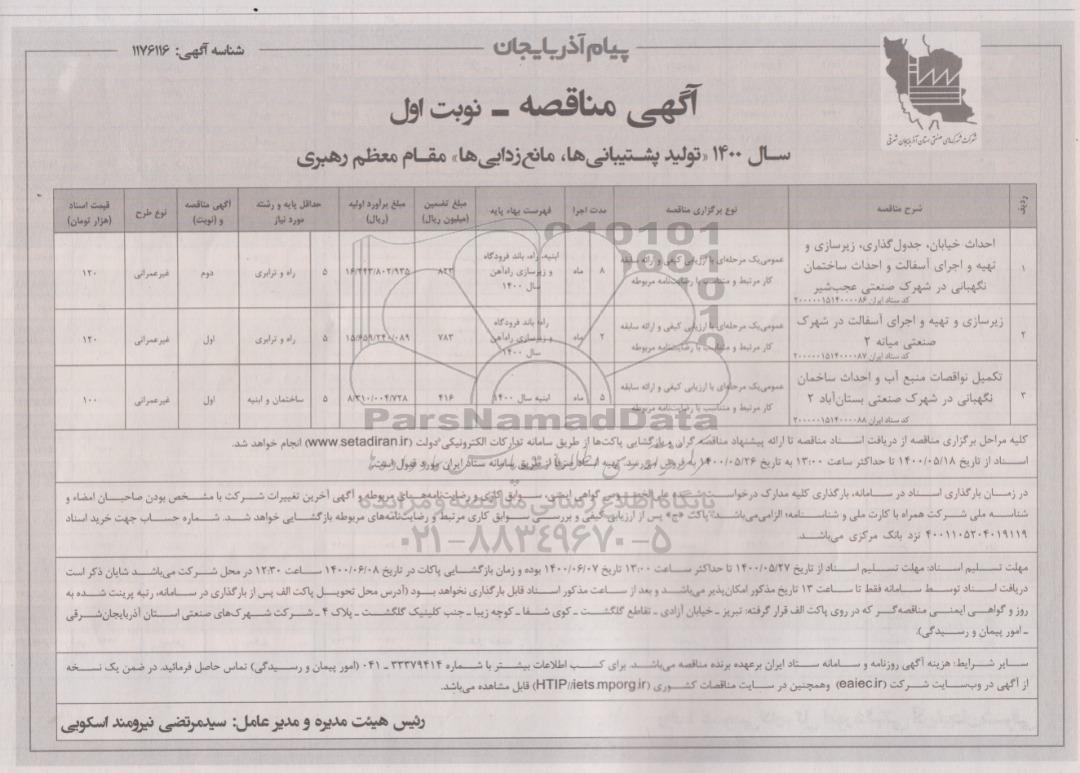 پیام آذربایجان
شناسه آگهی: ۱۱۷۶۱۱۶
شرکت شهرک‌های صنعتی استان آذربایجان شرقی
آگهی مناقصه ـ نوبت اول
سال ۱۴۰۰ «تولید پشتیبانی‌ها، مانع‌زدایی‌ها» مقام معظم رهبری
ردیف | شرح مناقصه | نوع برگزاری مناقصه | مدت اجرا | فهرست بهاء پایه | مبلغ تضمین (میلیون ریال) | مبلغ برآورد اولیه (ریال) | حداقل پایه و رشته مورد نیاز | آگهی مناقصه و (نوبت) | نوع طرح | قیمت اسناد (هزار تومان)
۱ | احداث خیابان، جدول‌گذاری، زیرسازی و تهیه و اجرای آسفالت و احداث ساختمان نگهبانی در شهرک صنعتی عجب‌شیر | عمومی یک مرحله‌ای با ارزیابی کیفی و ارائه سابقه کار مرتبط و متناسب با رضایتنامه مربوطه | ۸ ماه | ابنیه، راه، باند فرودگاه و زیرسازی راه‌آهن سال ۱۴۰۰ | ۸۲۳ | ۱۶/۴۴۳/۸۰۲/۹۳۵ | ۵ راه و ترابری | دوم | غیرعمرانی | ۱۲۰
کد ستاد ایران ۲۰۰۰۰۰۱۵۱۴۰۰۰۰۸۶
۲ | زیرسازی و تهیه و اجرای آسفالت در شهرک صنعتی میانه ۲ | عمومی یک مرحله‌ای با ارزیابی کیفی و ارائه سابقه کار مرتبط و متناسب با رضایتنامه مربوطه | ۲ ماه | راه، باند فرودگاه و زیرسازی راه‌آهن سال ۱۴۰۰ | ۷۸۳ | ۱۵/۶۵۹/۲۴۰/۰۸۹ | ۵ راه و ترابری | اول | غیرعمرانی | ۱۲۰
کد ستاد ایران ۲۰۰۰۰۰۱۵۱۴۰۰۰۰۸۷
۳ | تکمیل نواقصات منبع آب و احداث ساختمان نگهبانی در شهرک صنعتی بستان‌آباد ۲ | عمومی یک مرحله‌ای با ارزیابی کیفی و ارائه سابقه کار مرتبط و متناسب با رضایتنامه مربوطه | ۵ ماه | ابنیه سال ۱۴۰۰ | ۴۱۶ | ۸/۳۱۰/۰۰۴/۷۲۸ | ۵ ساختمان و ابنیه | اول | غیرعمرانی | ۱۰۰
کد ستاد ایران ۲۰۰۰۰۰۱۵۱۴۰۰۰۰۸۸
ParsNamadData
کلیه مراحل برگزاری مناقصه از دریافت اسناد مناقصه تا ارائه پیشنهاد مناقصه‌گران و بازگشایی پاکت‌ها از طریق سامانه تدارکات الکترونیکی دولت (www.setadiran.ir) انجام خواهد شد.
اسناد از تاریخ ۱۴۰۰/۰۵/۱۸ تا حداکثر ساعت ۱۳:۰۰ به تاریخ ۱۴۰۰/۰۵/۲۶ به فروش می‌رسد. تهیه اسناد صرفاً از طریق سامانه ستاد ایران مورد قبول است.
در زمان بارگذاری اسناد در سامانه، بارگذاری کلیه مدارک درخواست شده گواهی ایمنی، سوابق کاری و رضایتنامه‌های مربوطه و آگهی آخرین تغییرات شرکت با مشخص بودن صاحبان امضاء و
شناسه ملی شرکت همراه با کارت ملی و شناسنامه؛ الزامی می‌باشد. پاکت «ج» پس از ارزیابی کیفی و بررسی سوابق کاری مرتبط و رضایتنامه‌های مربوطه بازگشایی خواهد شد. شماره حساب جهت خرید اسناد
۴۰۰۱۱۰۵۲۰۴۰۱۹۱۱۹ نزد بانک مرکزی می‌باشد.
پایگاه اطلاع‌رسانی مناقصه و مزایده
۰۲۱-۸۸۳۴۹۶۷۰-۵
مهلت تسلیم اسناد: مهلت تسلیم اسناد از تاریخ ۱۴۰۰/۰۵/۲۷ تا حداکثر ساعت ۱۳:۰۰ تاریخ ۱۴۰۰/۰۶/۰۷ بوده و زمان بازگشایی پاکات در تاریخ ۱۴۰۰/۰۶/۰۸ ساعت ۱۲:۳۰ در محل شرکت می‌باشد شایان ذکر است
دریافت اسناد توسط سامانه فقط تا ساعت ۱۳ تاریخ مذکور امکان‌پذیر می‌باشد و بعد از ساعت مذکور اسناد قابل بارگذاری نخواهد بود (آدرس محل تحویل پاکت الف پس از بارگذاری در سامانه، رتبه پرینت شده به
روز و گواهی ایمنی مناقصه‌گر که در روی پاکت الف قرار گرفته: تبریز ـ خیابان آزادی ـ تقاطع گلگشت ـ کوی شفا ـ کوچه زیبا ـ جنب کلینیک گلگشت ـ پلاک ۴ ـ شرکت شهرک‌های صنعتی استان آذربایجان‌شرقی
ـ امور پیمان و رسیدگی).
سایر شرایط: هزینه آگهی روزنامه و سامانه ستاد ایران برعهده برنده مناقصه می‌باشد. برای کسب اطلاعات بیشتر با شماره ۳۳۳۷۹۴۱۴ ـ ۰۴۱ (امور پیمان و رسیدگی) تماس حاصل فرمائید. در ضمن یک نسخه
از آگهی در وب‌سایت شرکت (eaiec.ir) وهمچنین در سایت مناقصات کشوری (HTIP//iets.mporg.ir) قابل مشاهده می‌باشد.
رئیس هیئت مدیره و مدیر عامل: سیدمرتضی نیرومند اسکویی